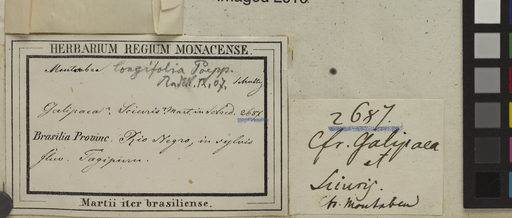 HERBARIUM REGIUM MONACENSE.
Moutabea longifolia Poepp.
Radlk. IX. 07.
Galipaea? Sciuris? Mart. in Sched. 2687
Brasilia Provinc. Rio Negro, in sylvis
fluv. Tagipuru.
Martii iter brasiliense.
2687.
Cfr. Galipaea
et
Sciuris.
cfr. Moutabea